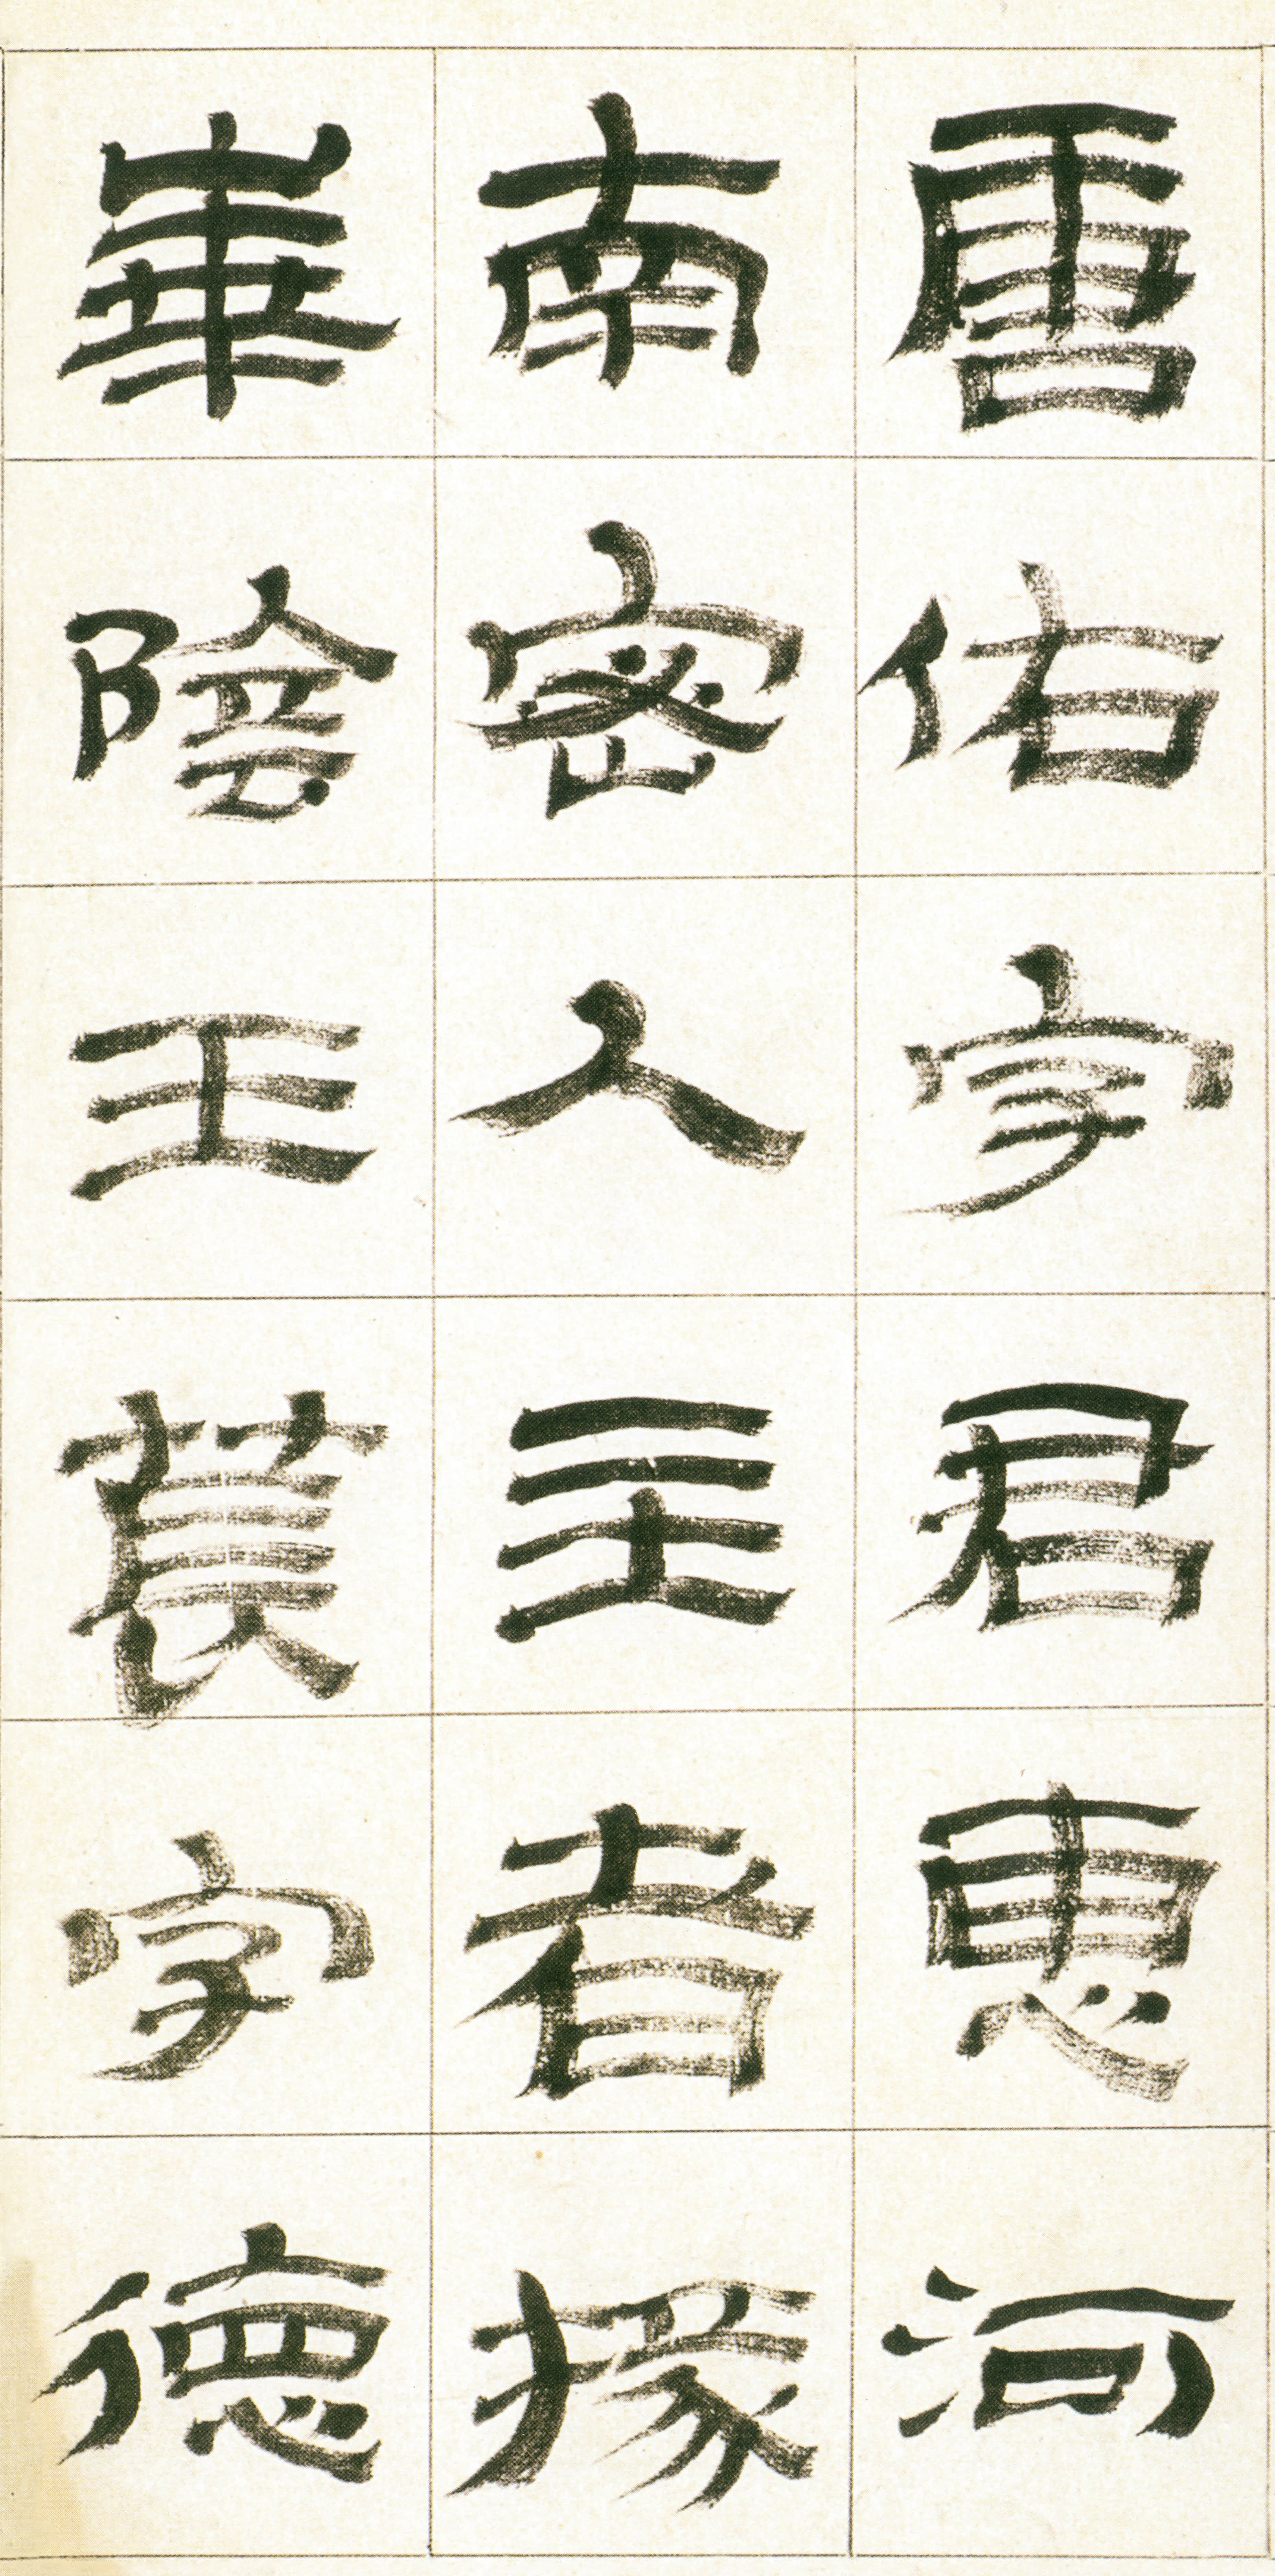 唐佑字君惠河
南密人主者掾
華陰王萇字德